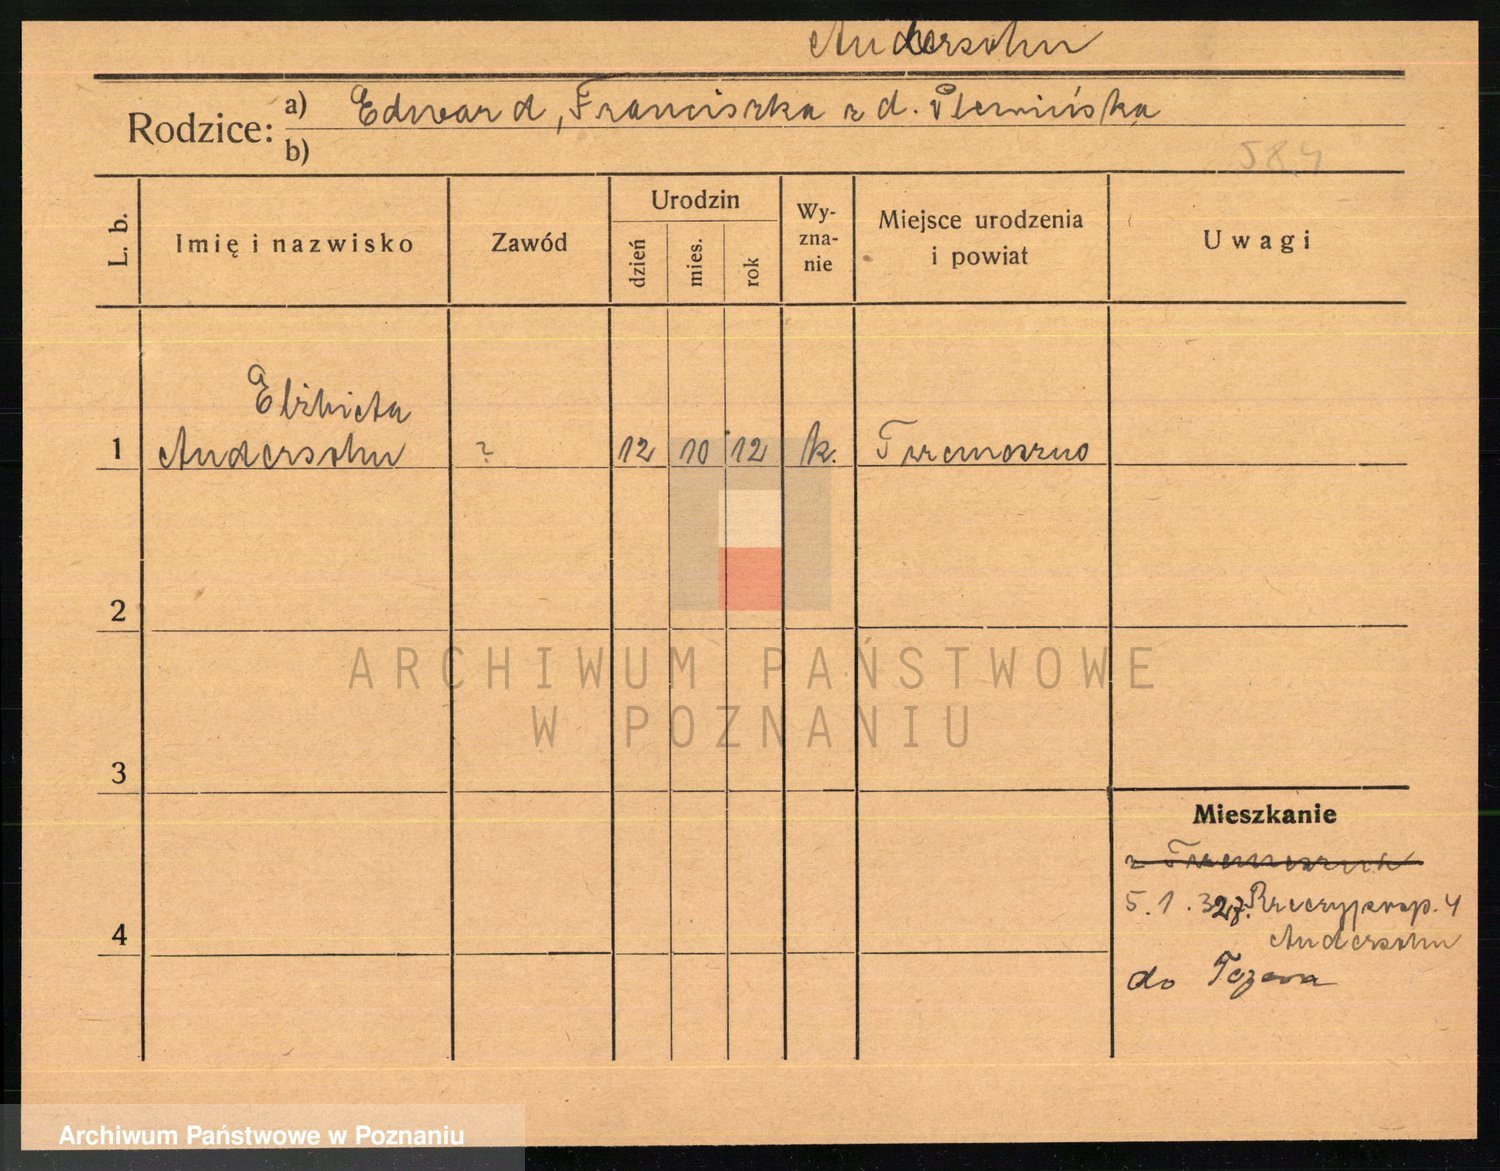 Andersohn
Rodzice: a) Edward, Franciszka z d. Plemińska
b)
584
L. b.
Imię i nazwisko
Zawód
Urodzin
dzień
mies.
rok
Wy-
zna-
nie
Miejsce urodzenia
i powiat
Uwagi
Elżbieta
1 Andersohn ? 12 10 12 k. Trzemeszno
2
3
4
Mieszkanie
z
5.1.327. Rzeczyposp. 4
Andersohn
do
ARCHIWUM PAŃSTWOWE
W POZNANIU
Archiwum Państwowe w Poznaniu